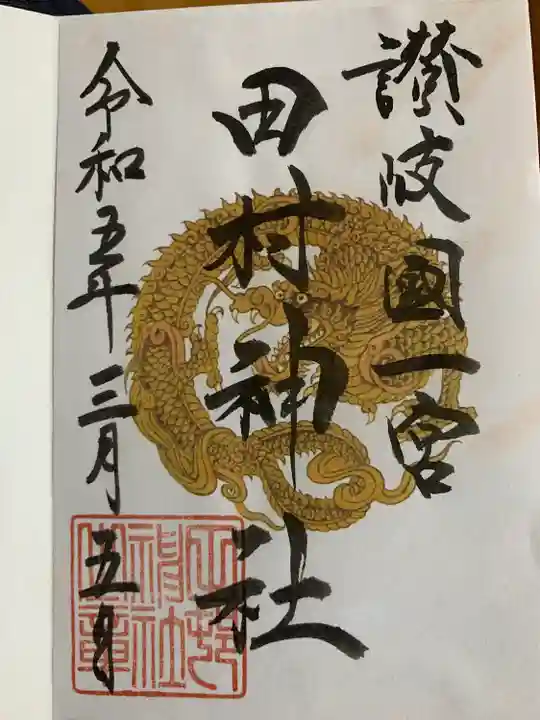 讃岐國一宮
田村神社
令和五年三月五日
田村神社之章